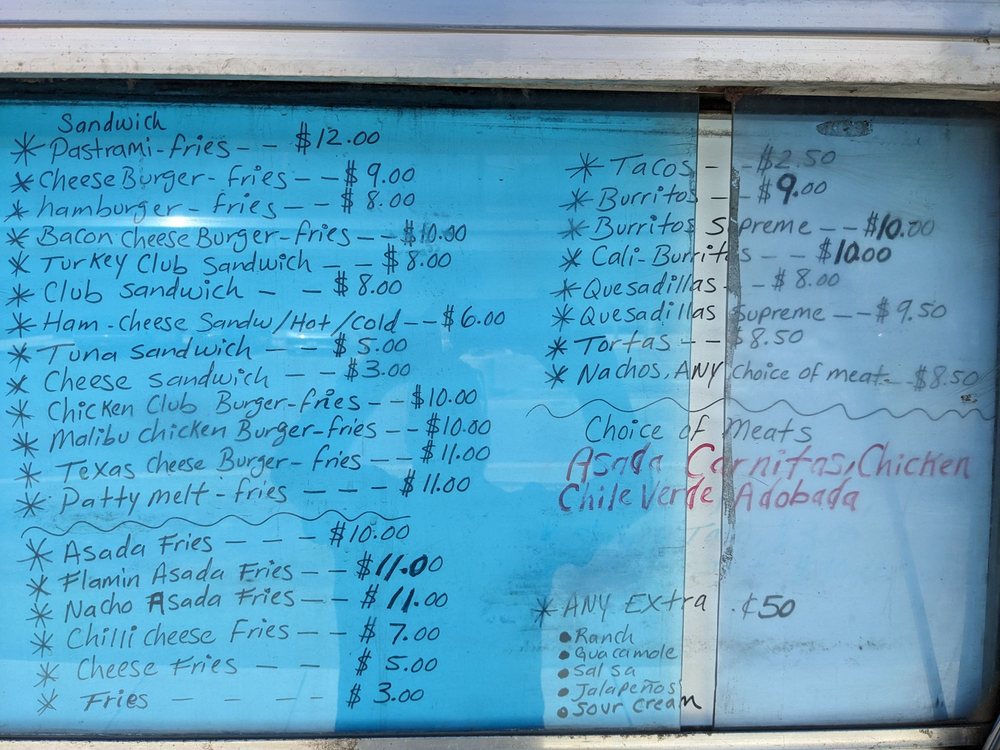 Sandwich
* Pastrami-fries - - $12.00
* CheeseBurger-fries - - $ 9.00
* hamburger - fries - - $ 8.00
* Bacon cheese Burger-fries - - $10.00
* Turkey Club Sandwich - - $ 8.00
* Club sandwich - - - $ 8.00
* Ham-cheese Sandw/Hot/Cold - - $6.00
* Tuna sandwich - - $ 5.00
* Cheese sandwich - - $3.00
* Chicken Club Burger-fries - - $10.00
* Malibu chicken Burger-fries - - $10.00
* Texas cheese Burger- fries - - $11.00
* Patty melt - fries - - - $11.00
* Asada Fries - - - $10.00
* Flamin Asada Fries - - $11.00
* Nacho Asada Fries - - $ 11.00
* Chilli cheese Fries - - $ 7.00
* Cheese Fries - - - $ 5.00
* Fries - - - - $ 3.00
* Tacos - - $2.50
* Burritos - - $9.00
* Burritos Supreme - - $10.00
* Cali-Burritos - - $10.00
* Quesadillas - - $ 8.00
* Quesadillas Supreme - - $ 9.50
* Tortas - - $8.50
* Nachos, ANY choice of meat - - $8.50
Choice of Meats
Asada Carnitas, Chicken
Chile Verde Adobada
* ANY Extra . ¢50
• Ranch
• Guacamole
• Salsa
• Jalapeños
• Sour cream